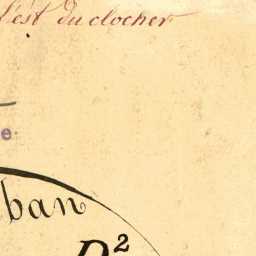 l'est du clocher
e.
ban
D²